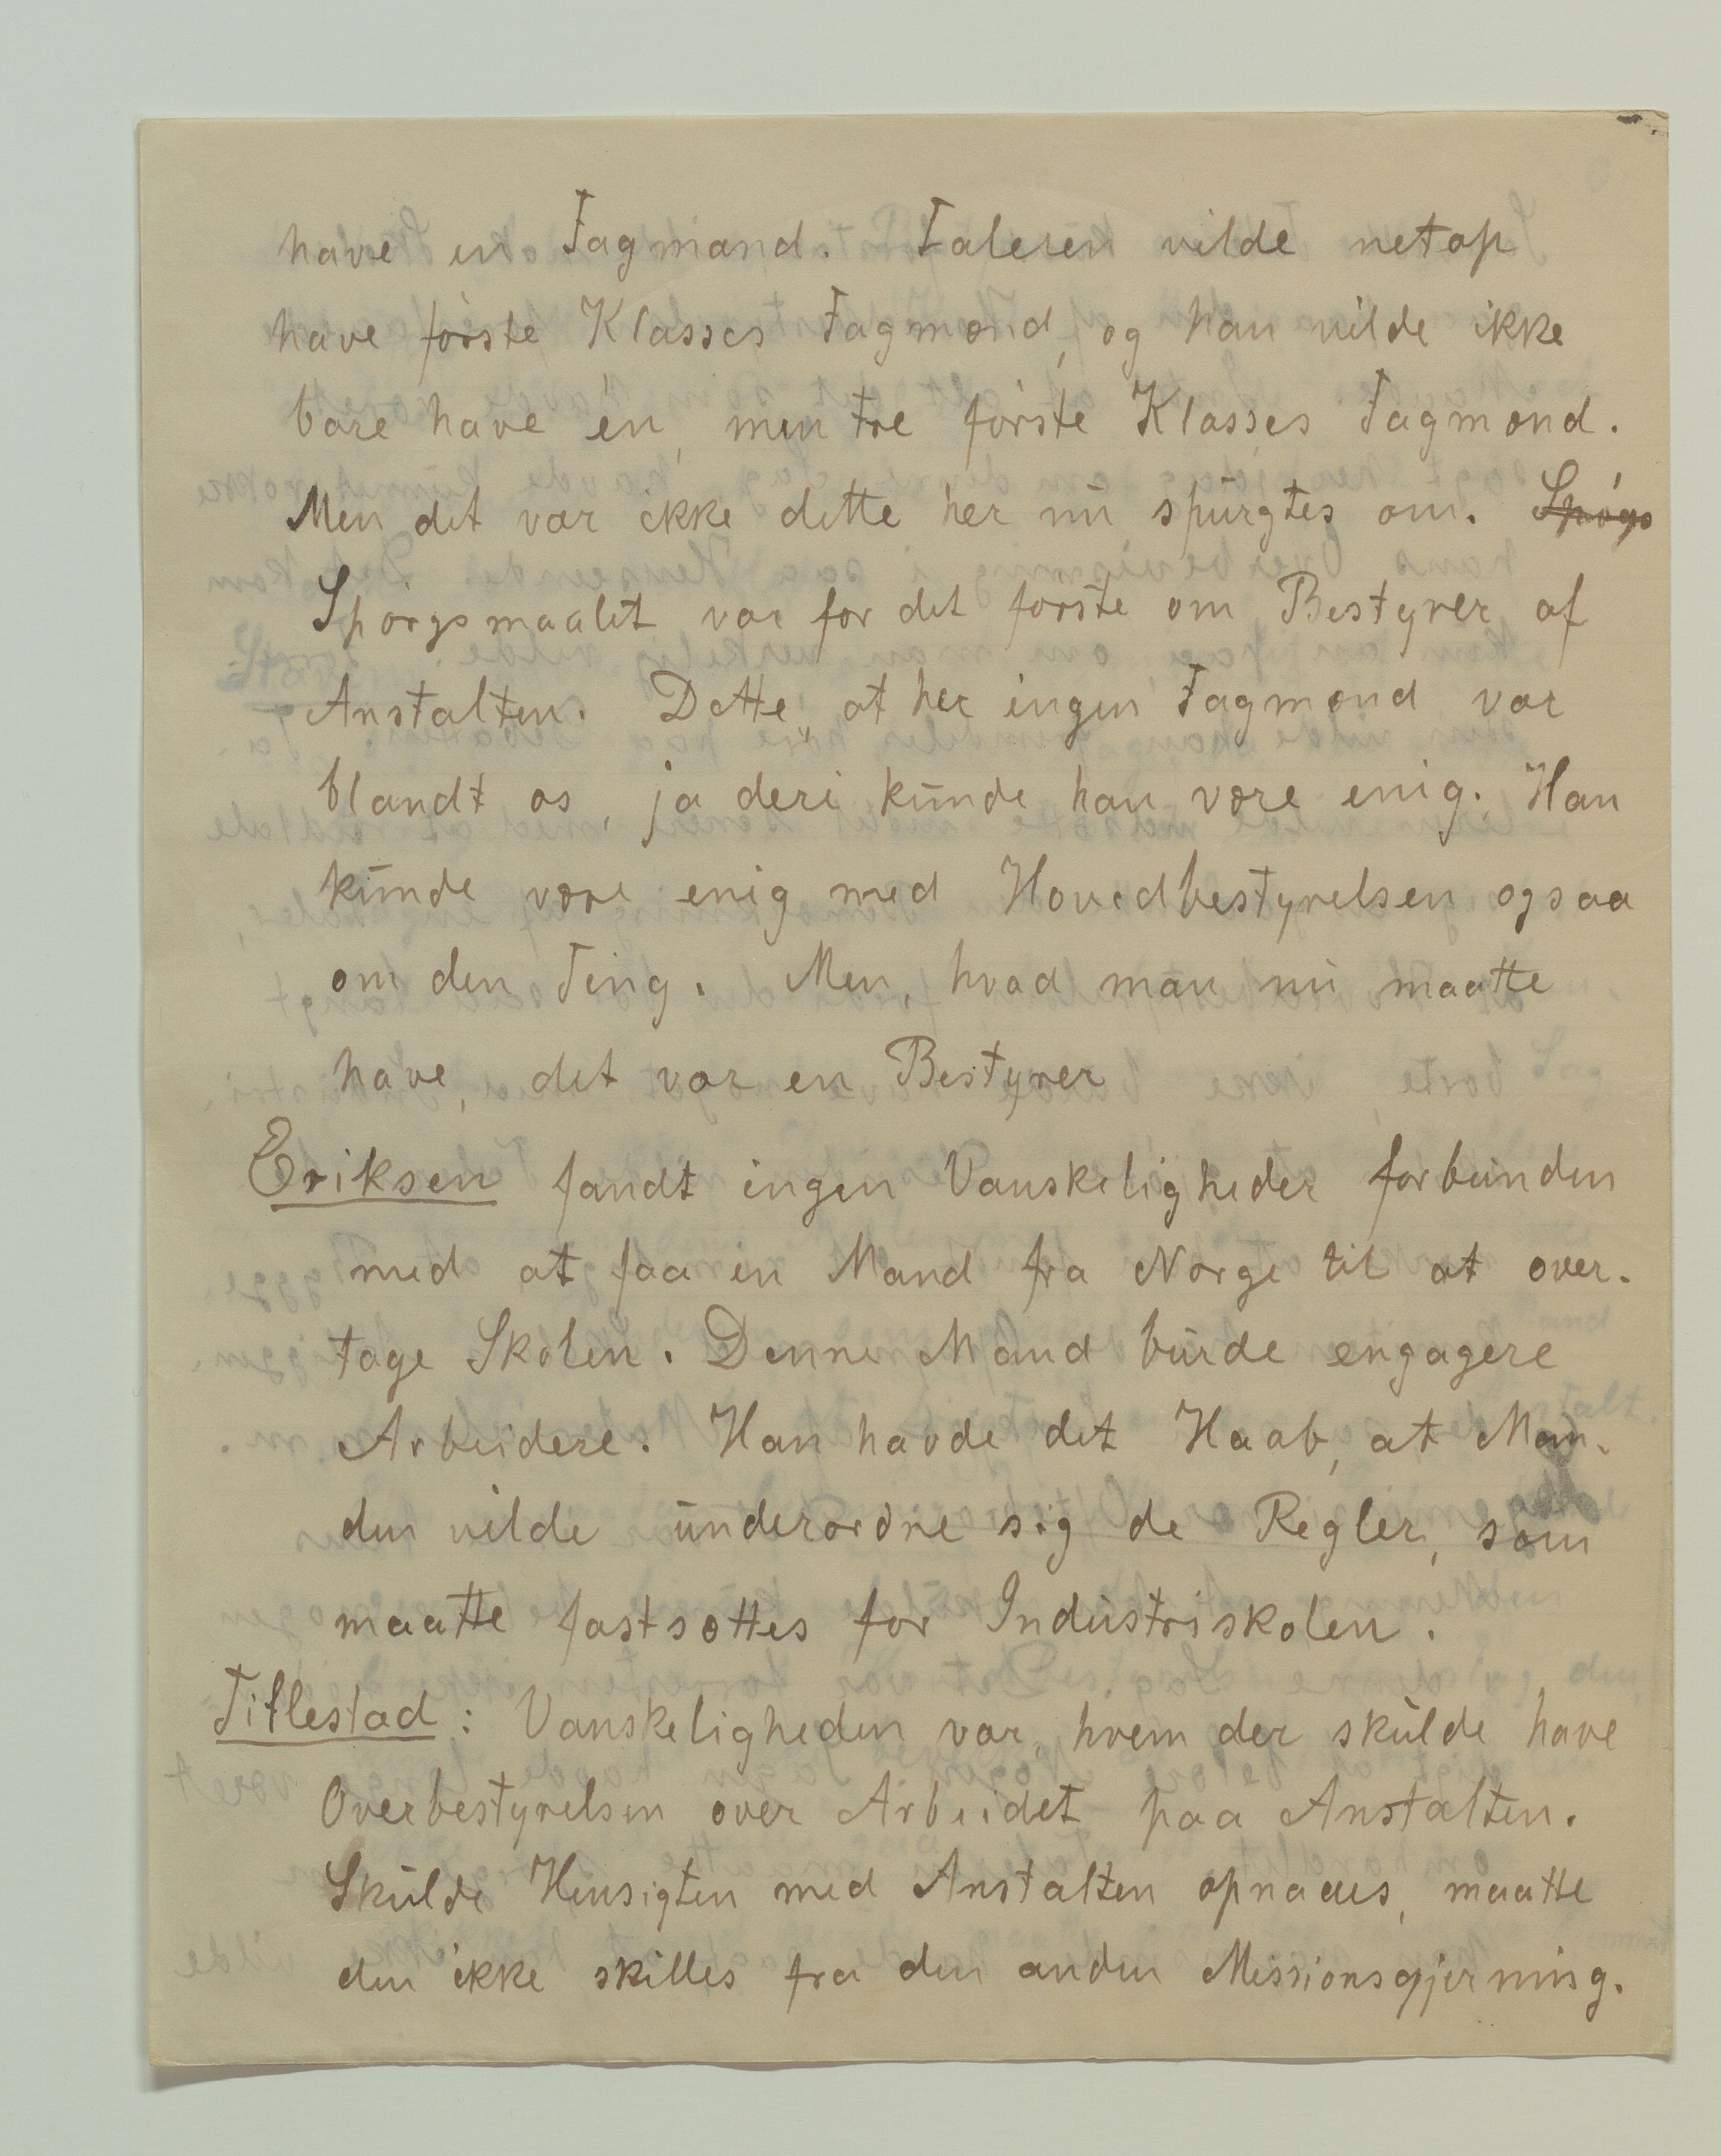 have en Fagmand. Taleren vilde netop
have første Klasses Fagmænd, og han vilde ikke
bare have én, men tre første Klasses Fagmænd.
Men det var ikke dette her nu spurgtes om. Spøgs
Spørgsmaalet var for det første om Bestyrer af
Anstalten. Dette, at her ingen Fagmænd var
blandt os, ja deri kunde han være enig. Han
kunde være enig med Hovedbestyrelsen ogsaa
om den Ting. Men, hvad man nu maatte
have, det var en Bestyrer
Eriksen fandt ingen Vanskeligheder forbunden
med at faa en Mand fra Norge til at over-
tage Skolen. Denne Mand burde engagere
Arbeidere. Han havde det Haab, at Man-
den vilde underordne sig de Regler, som
maatte fastsættes for Industriskolen.
Tillestad: Vanskeligheden var, hvem der skulde have
Overbestyrelsen over Arbeidet paa Anstalten.
Skulde Hensigten med Anstalten opnaaes, maatte
den ikke skilles fra den anden Missionsgjerning.